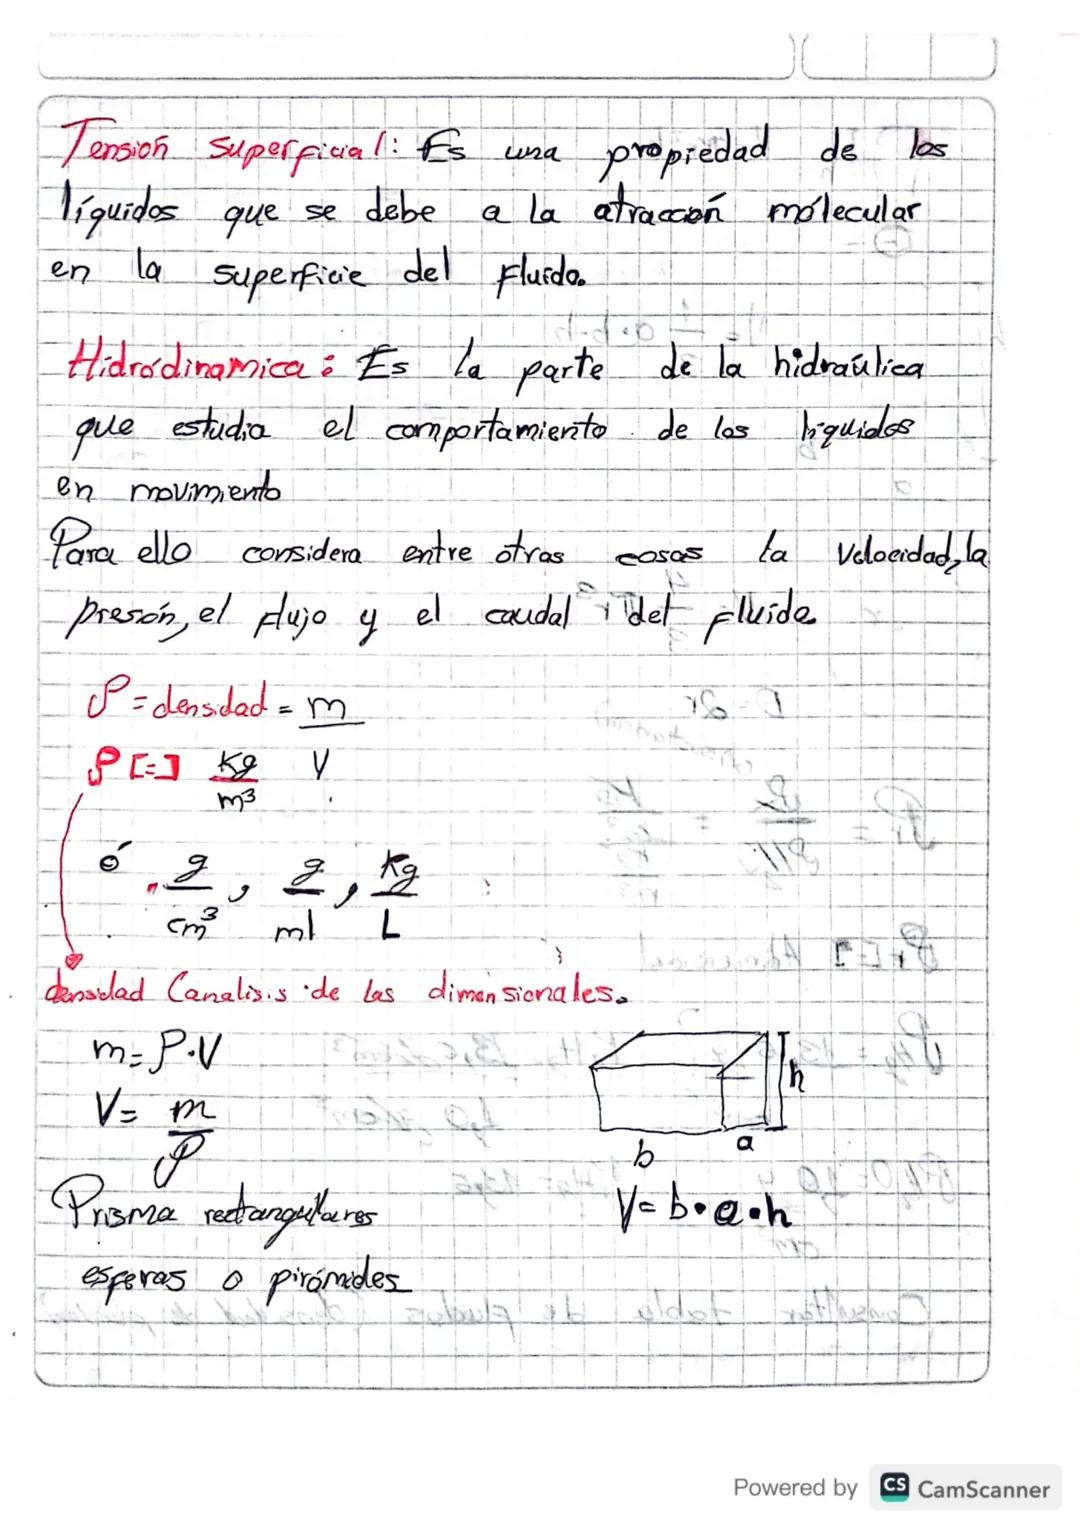 Tensión superficial: Es una propiedad de los
líquidos que se debe a la atracción molecular
en la superficie del Fluido.
Hidrodinamica: Es la parte de la hidraúlica
que estudia el comportamiento de los liquidos
en movimiento
Para ello considera entre otras cosas la Velocidad, la
presión, el flujo y el caudal del fluido.
ρ = densidad = m
ρ [=] Kg V
m³
ó g , g , Kg
cm³ ml L
densidad Canalisis de las dimensionales.
m = ρ.V
V = m
ρ
h
b a
Prisma rectangulares V = b•a•h
esferas o pirámides
Powered by CS CamScanner